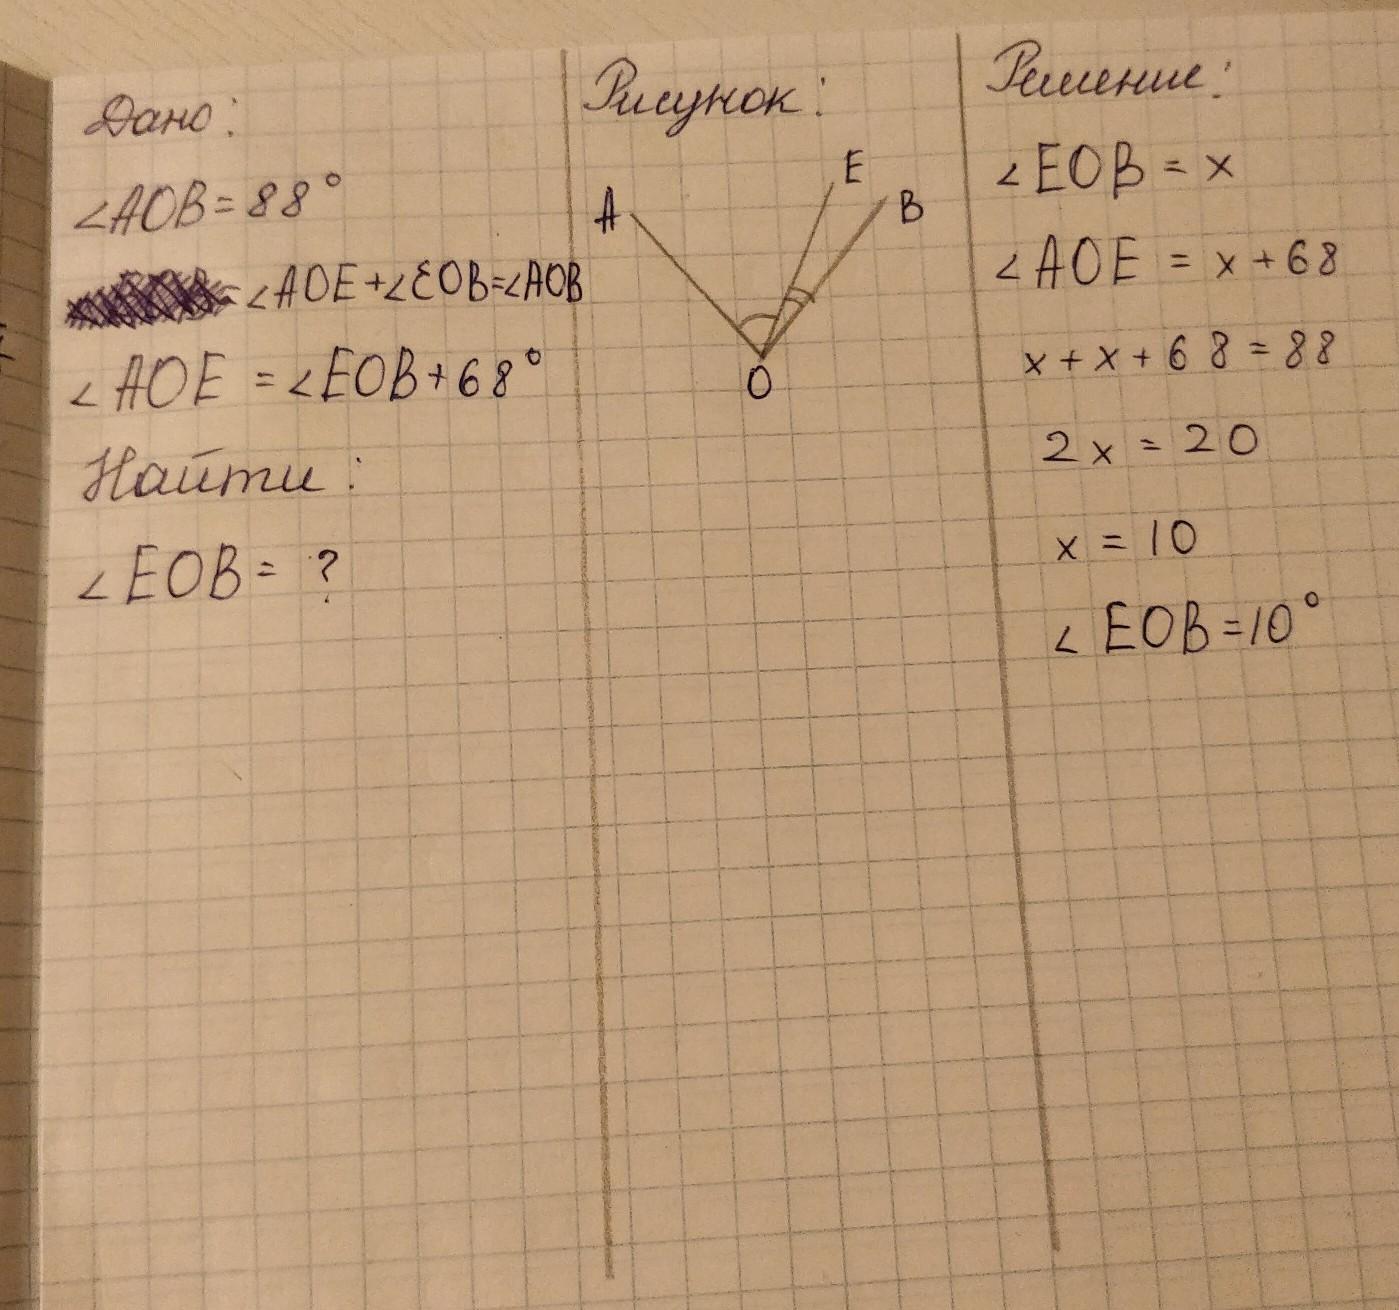 Дано:
∠AOB = 88°
= ∠AOE + ∠EOB = ∠AOB
∠AOE = ∠EOB + 68°
Найти:
∠EOB = ?
Рисунок:
A
E
B
O
Решение:
∠EOB = x
∠AOE = x + 68
x + x + 68 = 88
2x = 20
x = 10
∠EOB = 10°